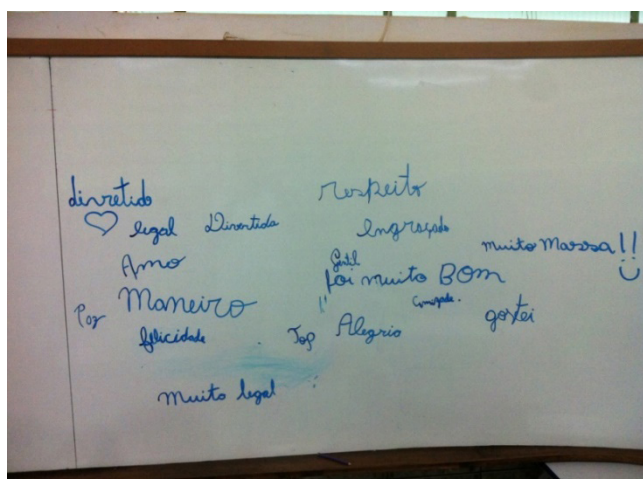 divretido
respeito
legal
Divertida
engraçado
muito Massa!!
Amo
Gentil
foi muito BOM
Paz
Maneiro
gostei
felicidade
Top
Alegria
Muito legal